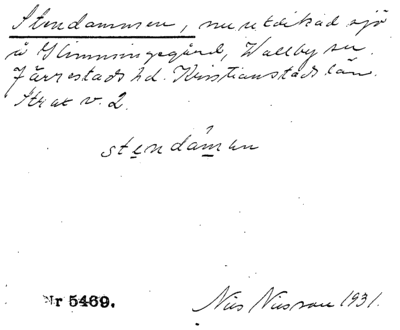 Stendammen, nu utdikad sjö
å Glimmingegård, Wallby sn.
Järrestads hd. Kristianstads län.
v. 2.
stendámen
Nr 5469. Nils Nilsson 1931.